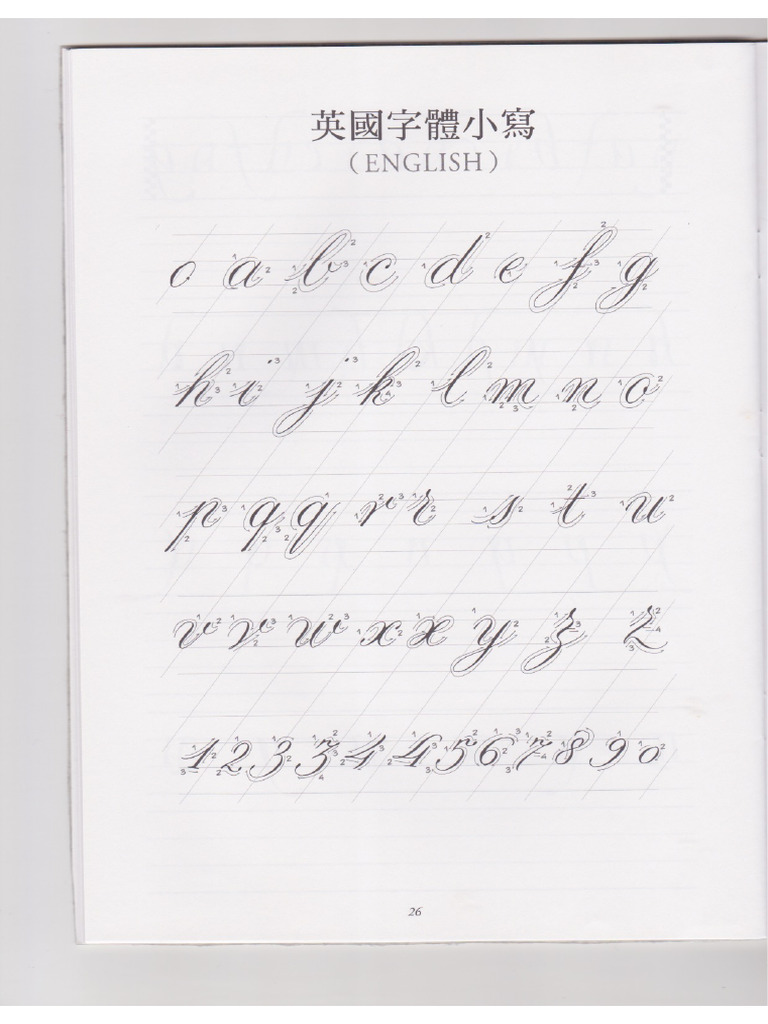 英國字體小寫
（ENGLISH）
o a b c d e f g
h i j k l m n o
p q q r r s t u
v v w x x y z z
1 2 3 3 4 4 5 6 7 8 9 0
26